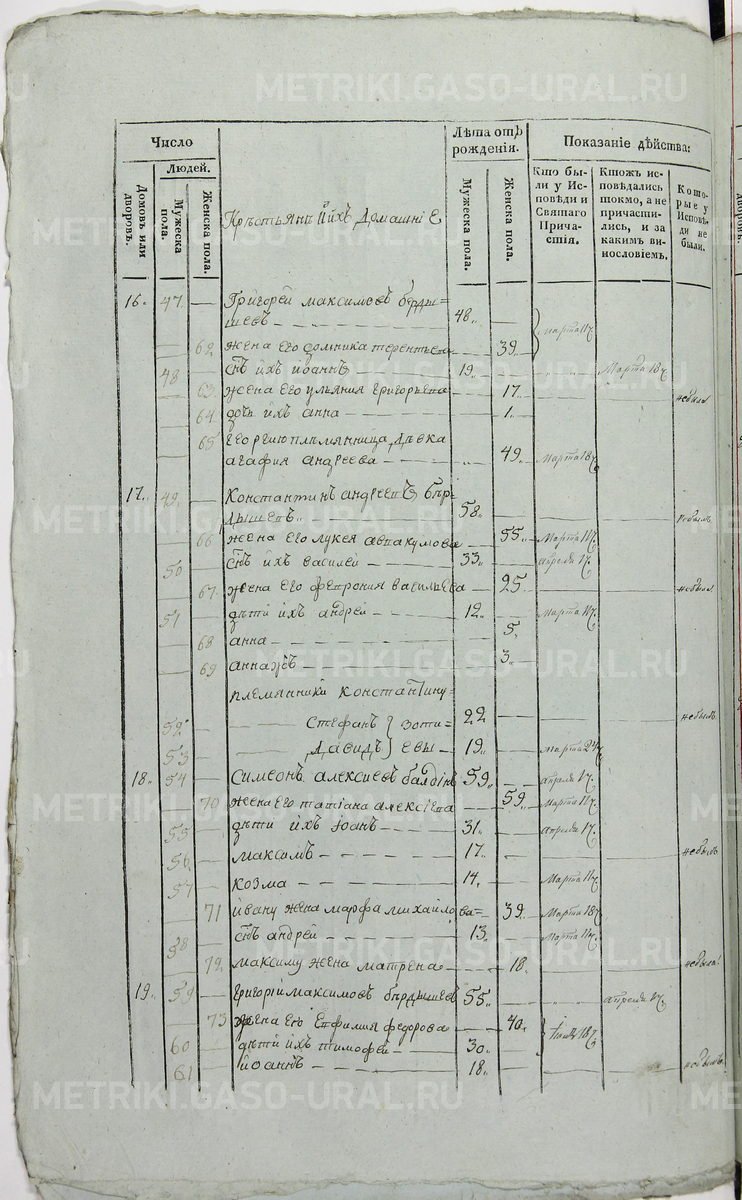 METRIKI.GASO-URAL.RU METRIKI.GASO-URAL.RU
Число
Лѣта отъ рожденія.
Показаніе дѣйства:
Домовъ или дворовъ.
Людей.
Мужеска пола.
Женска пола.
Крестьянъ Ихъ Домашніе
Мужеска пола.
Женска пола.
Кто были у Исповѣди и Святаго Причастія.
Ктожъ исповѣдались токмо, а не причастились, и за какимъ винословіемъ.
Которые у Исповѣди не были.
16. 47 Григорей максимовъ берды-
шевъ 48. марта 11ч
62 жена его домника терентьева 39.
48 снъ ихъ иоаннъ 19. Марта 18ч
63 жена его ульяния григорьева 17. небыла
64 дочь ихъ анна 1.
65 Георгию племянница девка
агафия андреева 49. Марта 18ч
17. 49 Константинъ андреевъ бер-
дышевъ 58. небылъ
66 жена его лукея аввакумова 55. Марта 11ч
50 снъ ихъ василей 33. апреля 1ч
67 жена его феврония васильева 25 небыла
51 дѣти ихъ андрей 12. Марта 11ч
68 анна 5.
69 анна жъ 3.
племянники константину
52 Стефанъ зоти- 22 небылъ
53 Давидъ евы 19. Марта 24
18. 54 Симеонъ алексиевъ балдинъ 59. апреля 1ч
70 жена его татиана алексиева 59. Марта 11ч
55 дѣти ихъ иоанъ 31. апреля 1ч
56 максимъ 17. небылъ
57 козма 14. Марта 11ч
71 ивану жена марфа михайлова 39. Марта 18ч
58 снъ андрей 13. Марта 11ч
72 максиму жена матрена 18. небыла
19. 59 Григорій максимовъ бердышевъ 55. апреля 1ч
73 жена его Евфимия федорова 40. 18ч
60 дѣти ихъ тимофей 30.
61 иоаннъ 18. небылъ